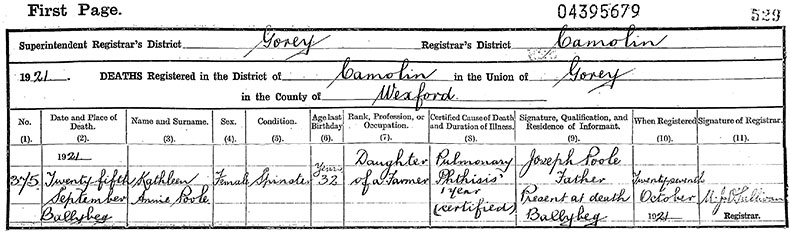 First Page.
04395679
529
Superintendent Registrar's District Gorey Registrar's District Camolin
1921. DEATHS Registered in the District of Camolin in the Union of Gorey
in the County of Wexford.
No. Date and Place of Death. Name and Surname. Sex. Condition. Age last Birthday Rank, Profession, or Occupation. Certified Cause of Death and Duration of Illness. Signature, Qualification, and Residence of Informant. When Registered Signature of Registrar.
(1). (2). (3). (4). (5). (6). (7). (8). (9). (10). (11).
375
1921
Twenty fifth
September
Ballybeg
Kathleen
Annie Poole
Female
Spinster
Years
32
Daughter
of a Farmer
Pulmonary
Phthisis
1 year
(certified)
Joseph Poole
Father
Present at death
Ballybeg
October
1921
Registrar.